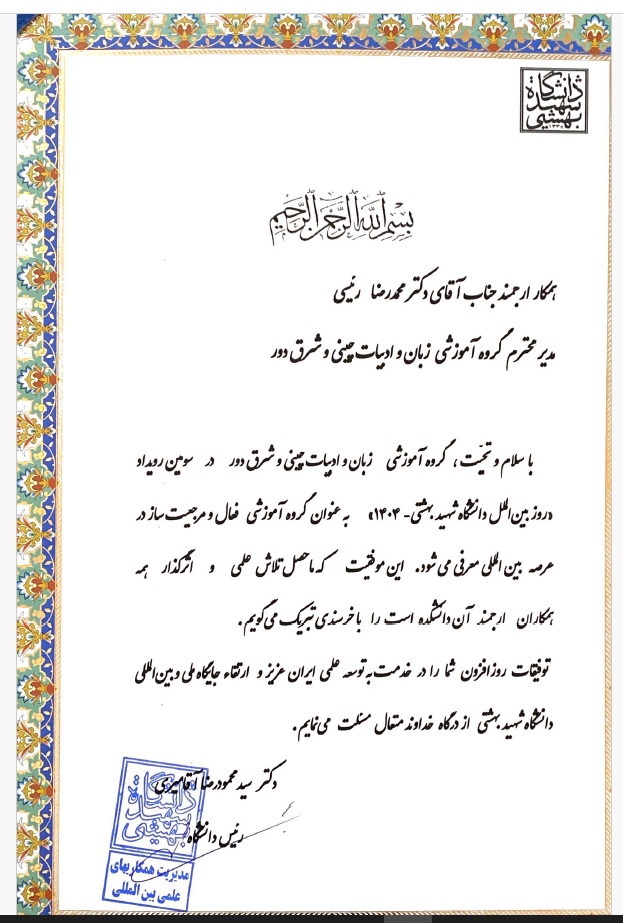 دانشگاه
شهید
بهشتی
بسم الله الرحمن الرحیم
همکار ارجمند جناب آقای دکتر محمدرضا رئیسی
مدیر محترم گروه آموزشی زبان و ادبیات چینی و شرق دور
با سلام و تحیّت، گروه آموزشی زبان و ادبیات چینی و شرق دور در سومین رویداد
«روز بین‌الملل دانشگاه شهید بهشتی- ۱۴۰۴» به عنوان گروه آموزشی فعال و مرجعیت ساز در
عرصه بین المللی معرفی می‌شود. این موفقیت که ماحصل تلاش علمی و اثرگذار همه
همکاران ارجمند آن دانشکده است را با خرسندی تبریک می‌گویم.
توفیقات روزافزون شما را در خدمت به توسعه علمی ایران عزیز و ارتقاء جایگاه ملی و بین‌المللی
دانشگاه شهید بهشتی از درگاه خداوند متعال مسئلت می‌نمایم.
دکتر سید محمودرضا آقامیری
رئیس دانشگاه
دانشگاه
شهید
بهشتی
مدیریت همکاریهای
علمی بین المللی